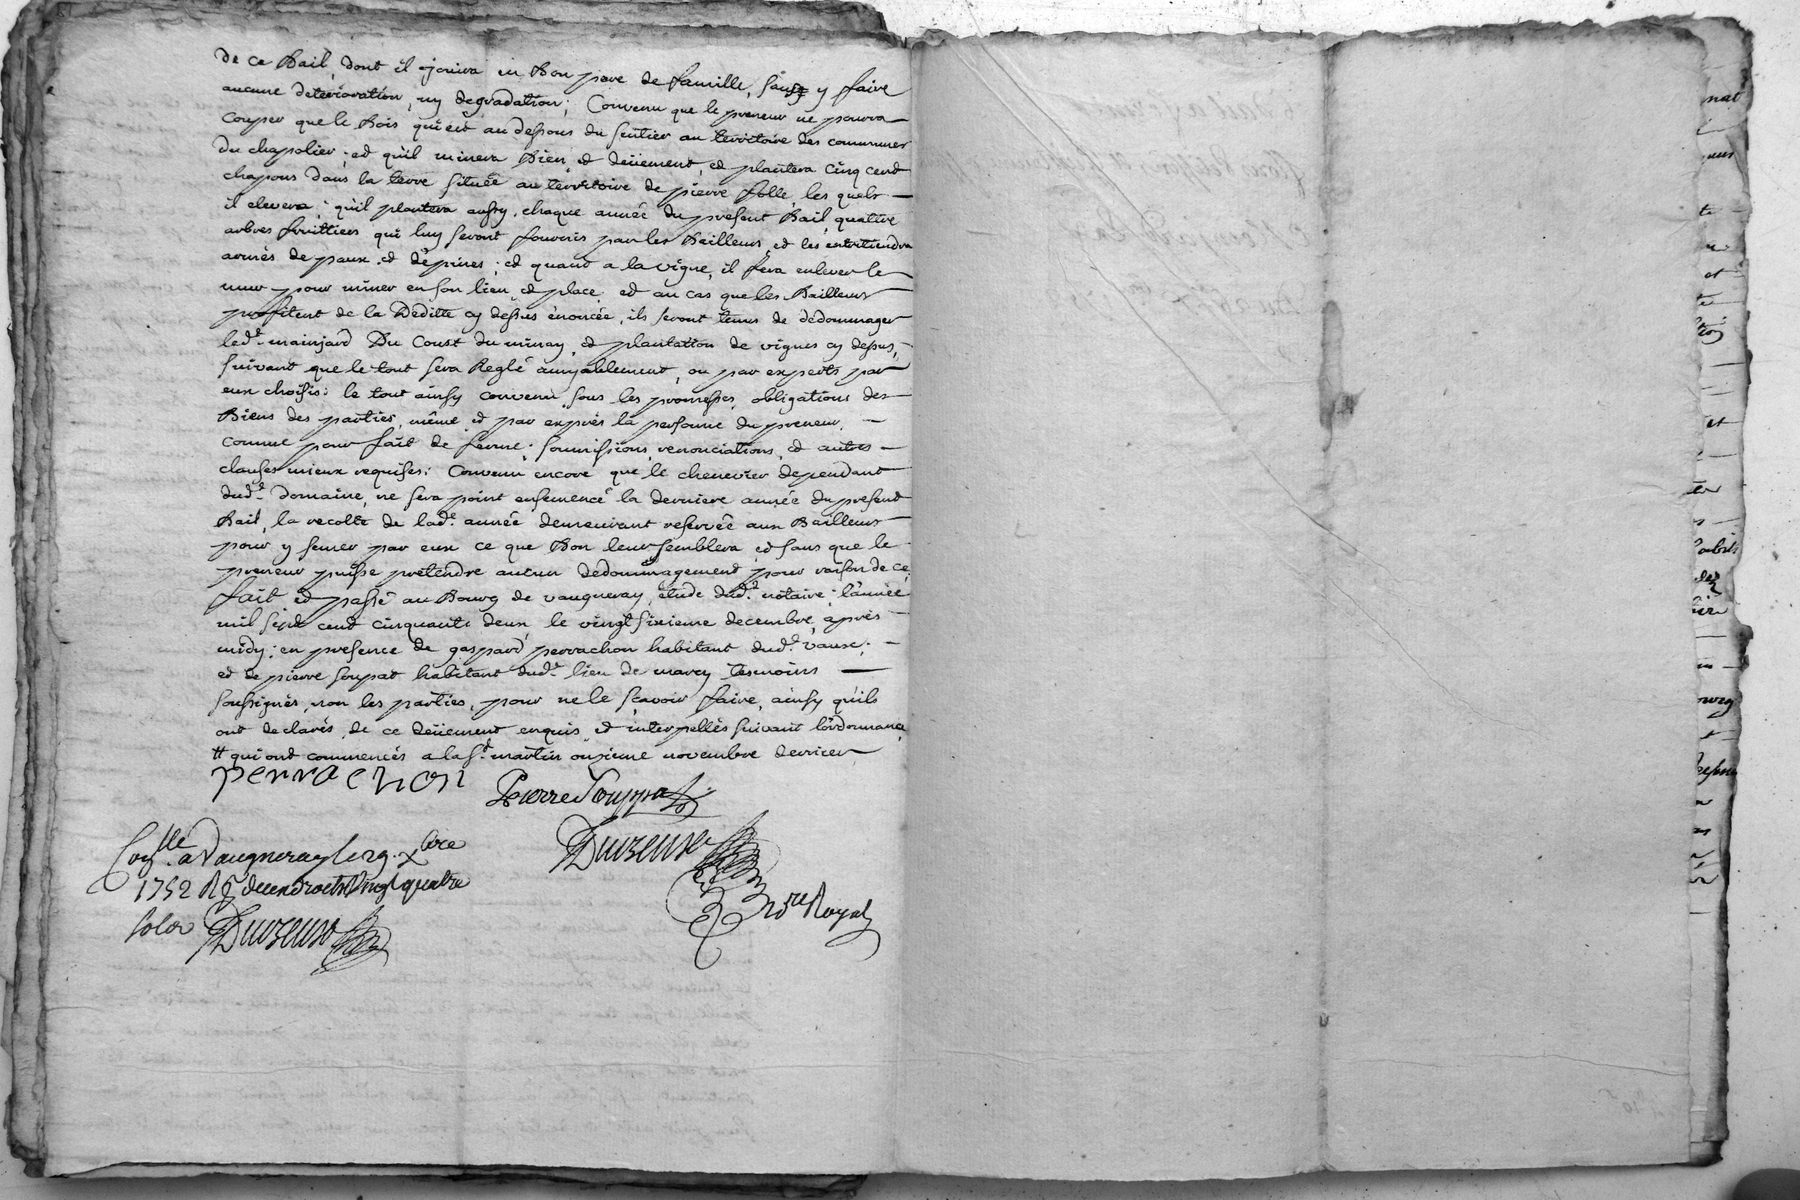 de ce Bail, dont il jouira en Bon pere de famille, sans y faire
aucune deterioration, ny degradation; Convenu que le preneur ne pourra
Couper que le Bois qui est au dessous du sentier au territoire des communes
du chapolier; et qu'il minera Bien et deüement, et plantera cinq cent
chapons dans la terre située au territoire de pierre folle, les quels
il elevera; qu'il plantera aussy, chaque année du present Bail, quattre
arbres fruittiers qui luy seront fournis par les Bailleurs, et les entretiendra
armés de paux et d'épines; et quant a la vigne, il fera enlever le
mur pour miner en son lieu et place et au cas que les Bailleurs
proffitent de la Deditte cy dessus énoncée, ils seront tenus de dedommager
led.t mainjard Du Coust du minay, et plantation de vignes cy dessus,
suivant que le tout sera Reglé amyablement, ou par experts par
eux choisis; le tout ainsy convenu sous les promesses, obligations des
Biens des parties, même et par exprès la personne du preneur,
comme pour fait de ferme; soumissions, renonciations, et autres
clauses mieux requises; Convenu encore que le chenevier dependant
dud.t domaine, ne sera point ensemencé la derniere année du present
Bail, la recolte de lad.e année demeurant reservée aux Bailleurs
pour y semer par eux ce que Bon leur semblera et sans que le
preneur puisse pretendre aucun dedommagement pour raison de ce,
fait et passé au Bourg de vaugneray, étude dud.t notaire; l'année
mil sept cent cinquante deux le vingt sixieme decembre, après
midy; en presence de gaspard perrachon habitant dud.t vaux;
et de pierre soupat habitant dud.t lieu de marcy tesmoins
soussignés, non les parties, pour ne le scavoir faire, ainsy qu'ils
ont declarés, de ce deüement enquis, et interpellés suivant l'ordonnance
# qui ont commencés a la S.t martin onzieme novembre dernier
perrachon
Pierre Souppat
Con.lle a Vaugneray le 29. Xbre
1752 R deux droits vingt quatre
solos
N.re Royal